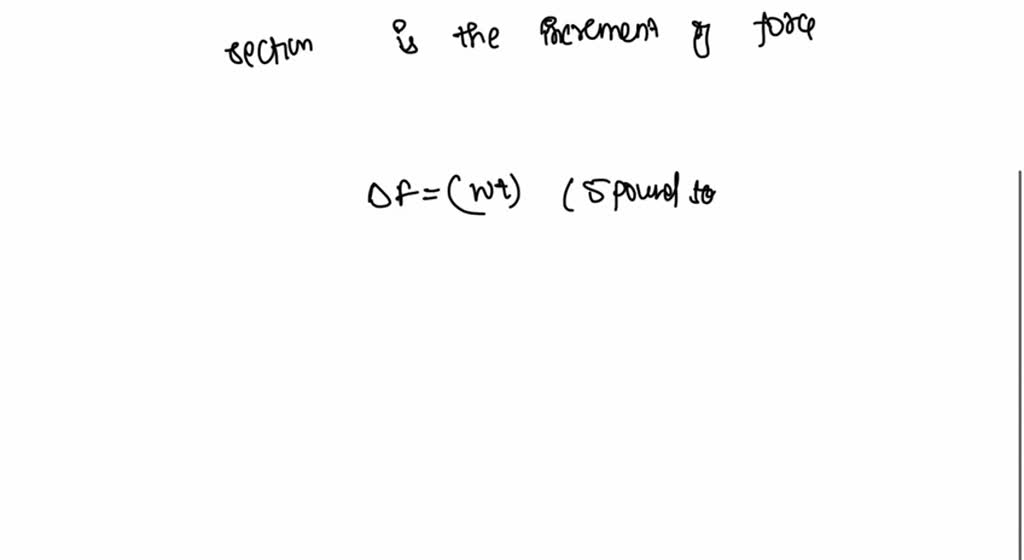 section is the increment of force
ΔF = (wt) (5 pound to